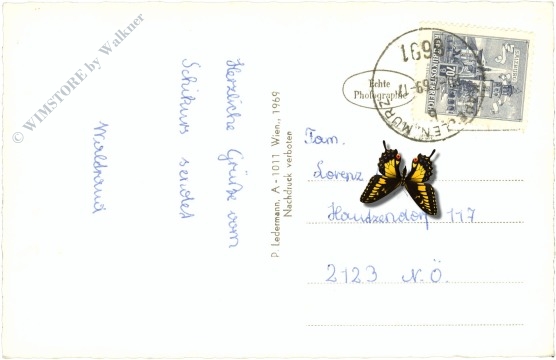 © WIMSTORE by Walkner
Herzliche Grüße vom
Schikurs sendet
Waltraud
P. Ledermann, A - 1011 Wien, 1969
Nachdruck verboten
Echte
Photographie
2691
REPUBLIK ÖSTERREICH
Fam.
Lorenz
Hautzendorf 117
2123 N.Ö.